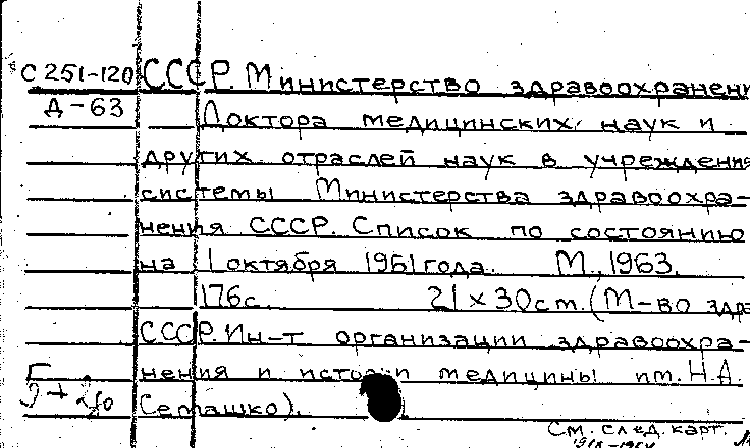 С251-120 СССР. Министерство здравоохранени
Д-63 Доктора медицинских наук и
других отраслей наук в учреждения
системы Министерства здравоохра-
нения СССР. Список по состоянию
на 1 октября 1961 года. М., 1963.
176с. 21 х 30см. (М-во здра
СССР. Ин-т организации здравоохра-
нения и истории медицины им. Н.А.
Семашко).
См. след. карт.